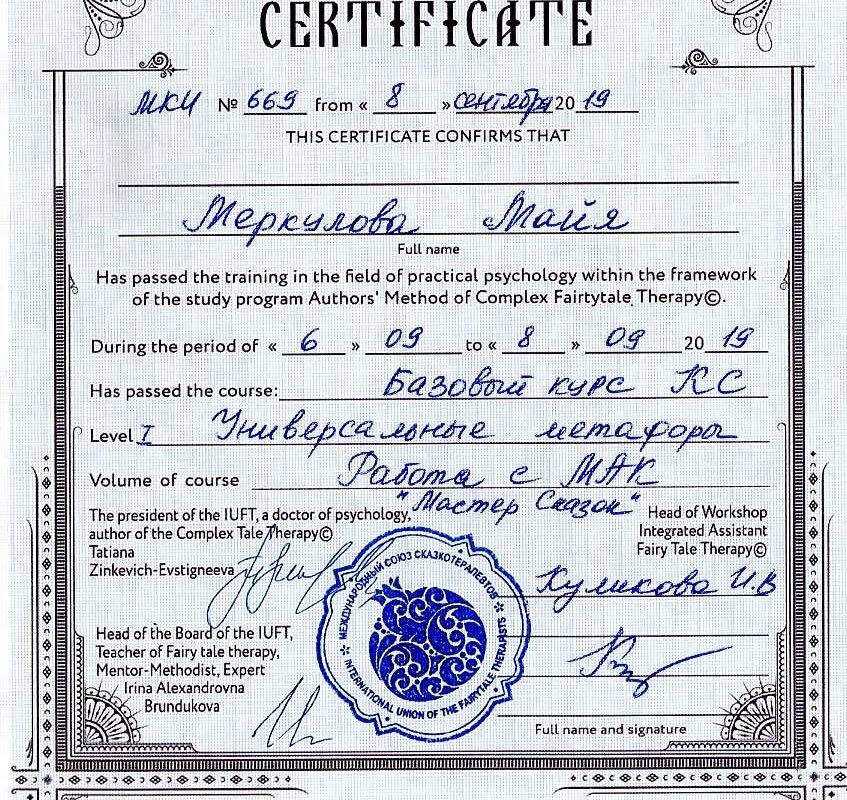 CERTIFICATE
МКИ № 669 from « 8 » сентября 20 19
THIS CERTIFICATE CONFIRMS THAT
Меркулова Майя
Full name
Has passed the training in the field of practical psychology within the framework
of the study program Authors' Method of Complex Fairtytale Therapy©.
During the period of « 6 » 09 to « 8 » 09 20 19
Has passed the course: Базовый курс КС
Level I Универсальные метафоры
Volume of course Работа с МАК
"Мастер Сказок"
The president of the IUFT, a doctor of psychology,
author of the Complex Tale Therapy©
Tatiana
Zinkevich-Evstigneeva
Head of Workshop
Integrated Assistant
Fairy Tale Therapy©
Куликова И.В
Head of the Board of the IUFT,
Teacher of Fairy tale therapy,
Mentor-Methodist, Expert
Irina Alexandrovna
Brundukova
МЕЖДУНАРОДНЫЙ СОЮЗ СКАЗКОТЕРАПЕВТОВ
INTERNATIONAL UNION OF THE FAIRYTALE THERAPISTS
Full name and signature